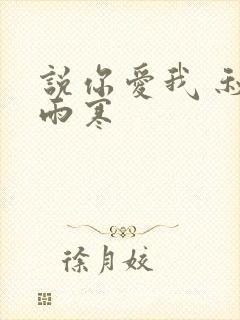 說你愛我
雨寒
徐月姣